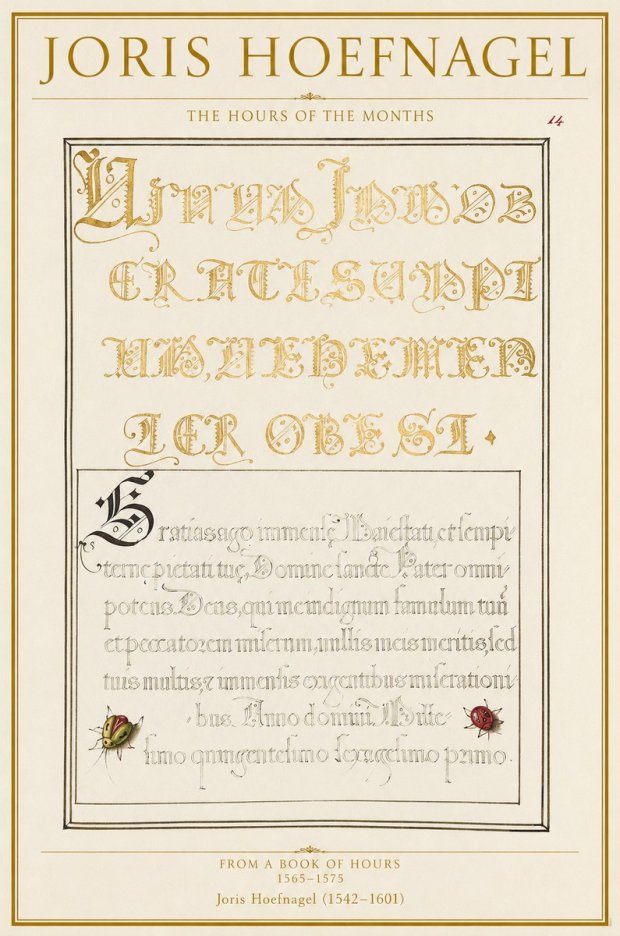 JORIS HOEFNAGEL
THE HOURS OF THE MONTHS
14
UINUM IMMOD
ERATE SUMPT
UM, VEHEMEN
TER OBEST.
Gratias ago immensę Maiestati, et sempi-
ternę pietati tuę, Domine sancte Pater omni-
potens Deus, qui me indignum famulum tuū
et peccatorem miserum, nullis meis meritis, sed
tuis multis, & immensis exigentibus miserationi-
bus. Anno domini Mille-
simo quingentesimo sexagesimo primo.
FROM A BOOK OF HOURS
1565–1575
Joris Hoefnagel (1542–1601)